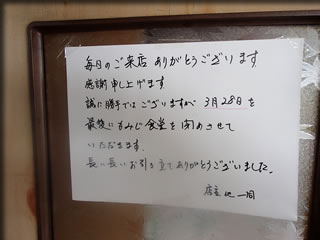 毎日のご来店ありがとうございます
感謝申し上げます
誠に勝手ではございますが 3月28日を
最後にもみじ食堂を閉めさせて
いただきます.
長い長いお引き立てありがとうございました.
店主 一同